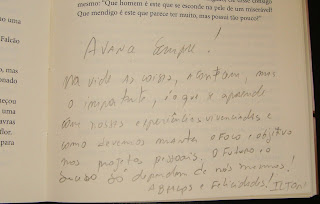 mesmo: "Que homem é este que se esconde na pele de um miserável!
Que mendigo é este que parece ter muito, mas possui tão pouco!"
uma
Falcão
o, mas
onado
eçou
uma
avras
flor.
para
AVANA Sempre!
NA vida as coisas, acontam, mas
o importante, é o que se aprende
com nossas experiências vivenciadas e
como devemos manter o foco e objetivo
nos projetos pessoais. O Futuro e o
sucesso só dependem de nós mesmos!
ABRAÇOS e Felicidades! ILTON!